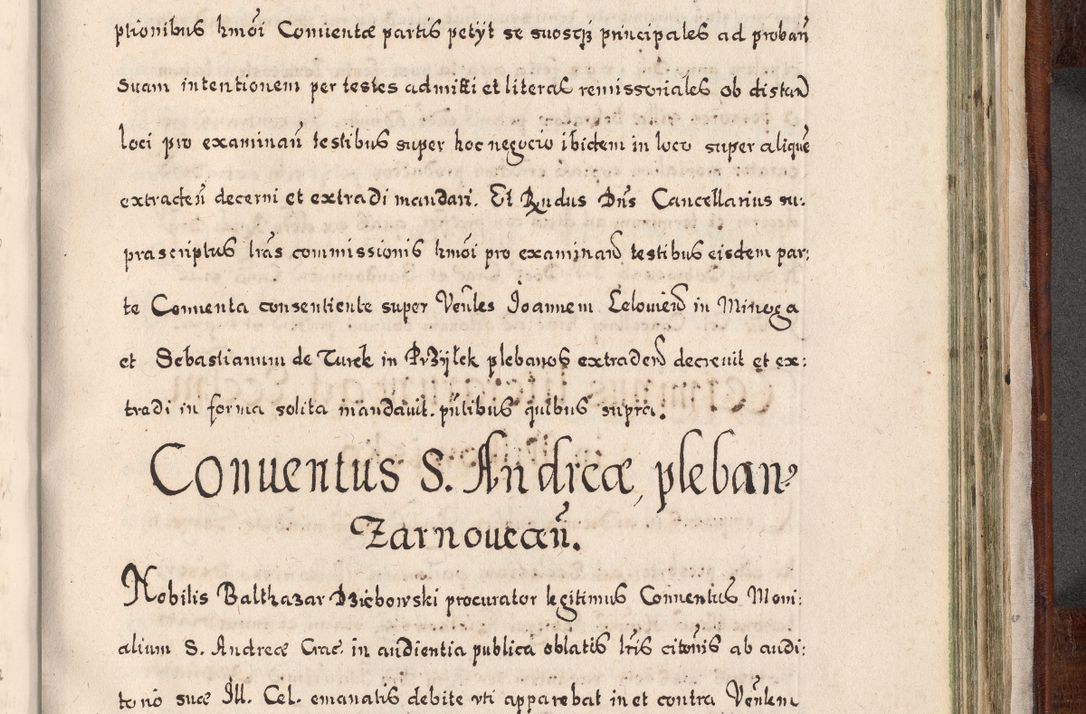 ptionibus hmõi Conuentæ partis petÿt se suosq́ꝫ principales ad proban̄
suam intentionem per testes admitti et literas remissoriales ob distan̄
loci pro examinan̄ testibus super hoc negocio ibidem in loco super aliquē
extracten̄ decerni et extradi mandari. Et Rn̄dus Dn̄s Cancellarius su:
prascriptus lrās commissionis hmõi pro examinan̄ testibus eisdem par:
te Conuenta consentiente super Ven̄les Joannem Lelowien̄ in Minoga
et Sebastianum de Turek in Przÿłek plebanos extraden̄ decreuit et ex:
tradi in forma solita mandauit. pn̄tibus quibus supra.
Conuentus S. Andreæ, pleban.
Zarnoueceñ.
Nobilis Balthazar Dzięborwski procurator legitimus Conuentus Moni:
alium S. Andreæ Crac. in audientia publica oblatis lrīs citōnis ab audi:
to rio suæ Ill. Cel. emanatis debite vti apparebat in et contra Ven̄lem